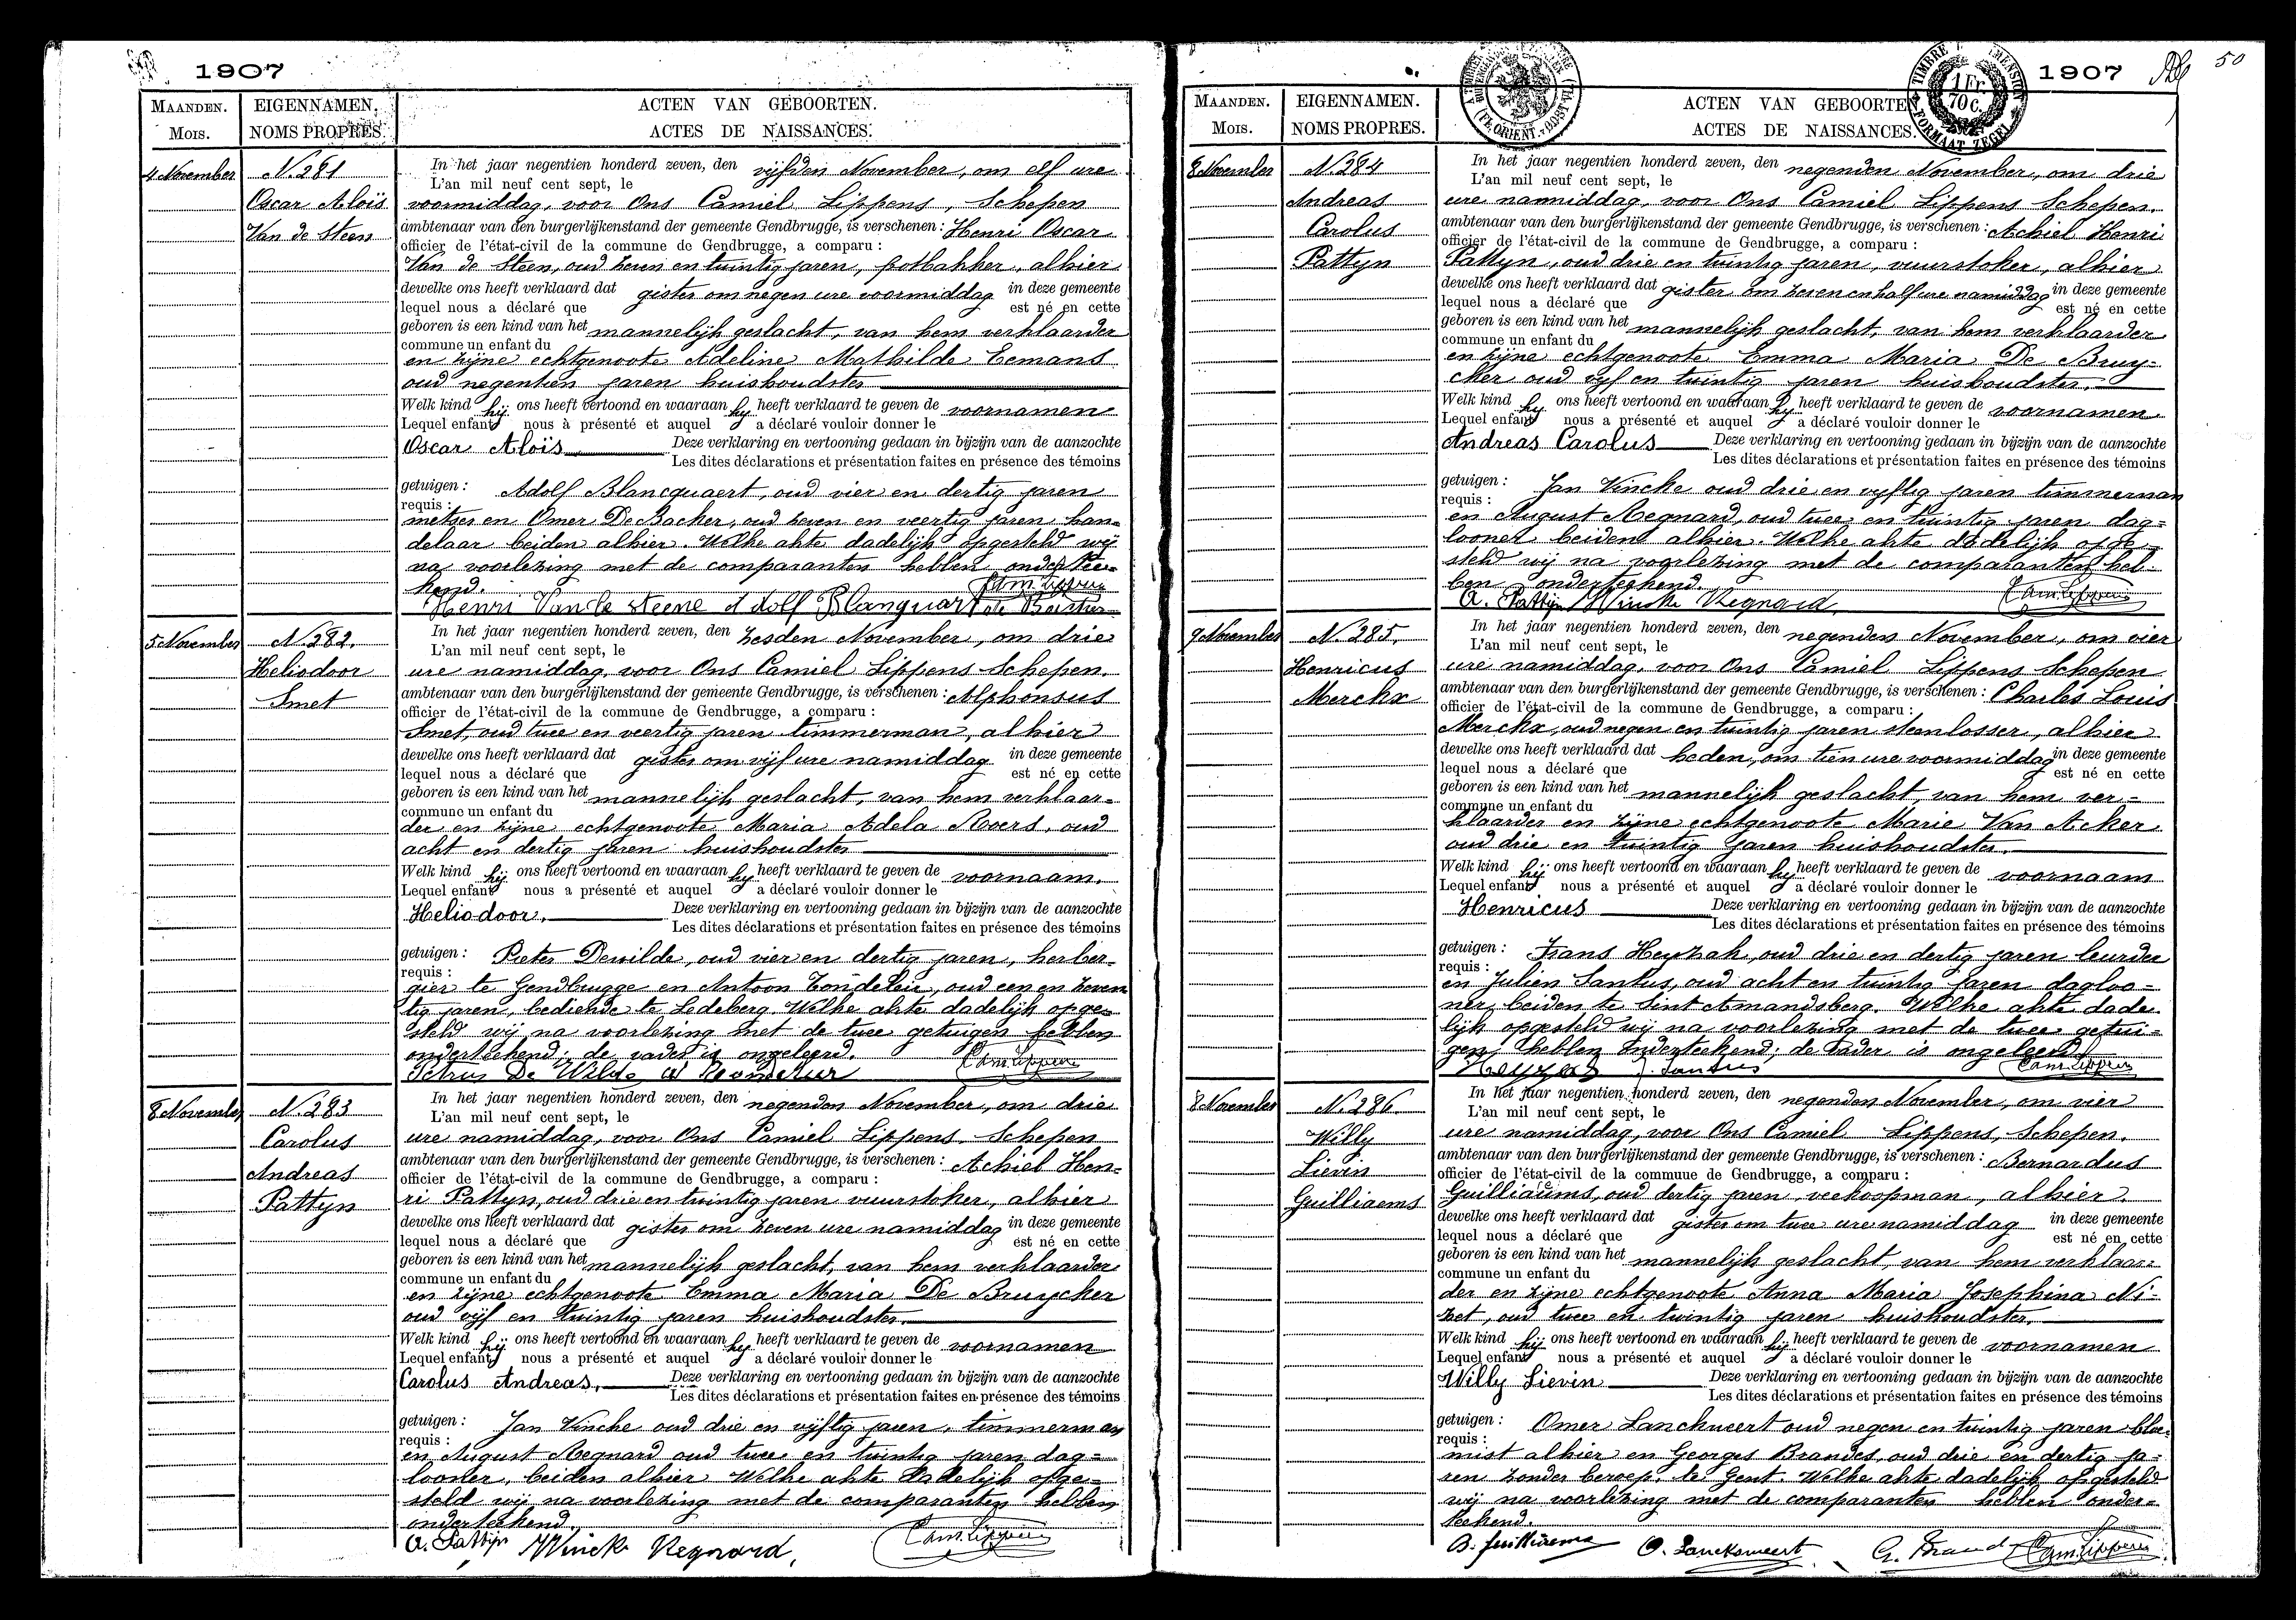 1907
MAANDEN.
Mois.
EIGENNAMEN.
NOMS PROPRES.
ACTEN VAN GEBOORTEN.
ACTES DE NAISSANCES.
4 November
N. 281
Oscar Aloïs
Van de Steen
In het jaar negentien honderd zeven, den vijfden November, om elf ure
L'an mil neuf cent sept, le
voormiddag, voor Ons Camiel Lippens, Schepen
ambtenaar van den burgerlijkenstand der gemeente Gendbrugge, is verschenen: Henri Oscar
officier de l'état-civil de la commune de Gendbrugge, a comparu :
Van de Steen, oud zeven en twintig jaren, potbakker, alhier
dewelke ons heeft verklaard dat gister om negen ure voormiddag in deze gemeente
lequel nous a déclaré que est né en cette
geboren is een kind van het mannelijk geslacht, van hem verklaarder
commune un enfant du
en zijne echtgenoote Adeline Mathilde Eemans
oud negentien jaren huishoudster
Welk kind hij ons heeft vertoond en waaraan hy heeft verklaard te geven de voornamen
Lequel enfant nous à présenté et auquel a déclaré vouloir donner le
Oscar Aloïs Deze verklaring en vertooning gedaan in bijzijn van de aanzochte
Les dites déclarations et présentation faites en présence des témoins
getuigen : Adolf Blancquaert, oud vier en dertig jaren
requis :
metser en Omer De Backer, oud zeven en veertig jaren han=
delaar beiden alhier. Welke akte dadelijk opgesteld wij
na voorlezing met de comparanten hebben ondertee=
kend. Cam. Lippens
Henri Van de Steene Adolf Blanquart De Backer
5 November
N. 282.
Heliodoor
Smet
In het jaar negentien honderd zeven, den zesden November, om drie
L'an mil neuf cent sept, le
ure namiddag, voor Ons Camiel Lippens Schepen.
ambtenaar van den burgerlijkenstand der gemeente Gendbrugge, is verschenen : Alphonsus
officier de l'état-civil de la commune de Gendbrugge, a comparu :
Smet, oud twee en veertig jaren timmerman, alhier
dewelke ons heeft verklaard dat gister om vijf ure namiddag in deze gemeente
lequel nous a déclaré que est né en cette
geboren is een kind van het mannelijk geslacht, van hem verklaar=
commune un enfant du
der en zijne echtgenoote Maria Adela Roers, oud
acht en dertig jaren huishoudster
Welk kind hij ons heeft vertoond en waaraan hy heeft verklaard te geven de voornaam.
Lequel enfant nous a présenté et auquel a déclaré vouloir donner le
Heliodoor. Deze verklaring en vertooning gedaan in bijzijn van de aanzochte
Les dites déclarations et présentation faites en présence des témoins
getuigen : Pieter Dewilde, oud vier en dertig jaren, herber=
requis :
gier te Gendbrugge en Antoon Tondeleir, oud een en zeven
tig jaren, bediende te Ledeberg. Welke akte dadelijk opge=
steld wij na voorlezing met de twee getuigen hebben
onderteekend; de vader is ongeleerd. Cam. Lippens
Petrus De Wilde
8 November
N. 283
Carolus
Andreas
Pattyn
In het jaar negentien honderd zeven, den negenden November, om drie
L'an mil neuf cent sept, le
ure namiddag, voor Ons Camiel Lippens, Schepen
ambtenaar van den burgerlijkenstand der gemeente Gendbrugge, is verschenen : Achiel Hen=
officier de l'état-civil de la commune de Gendbrugge, a comparu :
ri Pattyn, oud drie en twintig jaren vuurstoker, alhier
dewelke ons heeft verklaard dat gister om zeven ure namiddag in deze gemeente
lequel nous a déclaré que est né en cette
geboren is een kind van het mannelijk geslacht, van hem verklaarder
commune un enfant du
en zijne echtgenoote Emma Maria De Bruycker
oud vijf en twintig jaren huishoudster.
Welk kind hij ons heeft vertoond en waaraan hy heeft verklaard te geven de voornamen
Lequel enfant nous a présenté et auquel a déclaré vouloir donner le
Carolus Andreas. Deze verklaring en vertooning gedaan in bijzijn van de aanzochte
Les dites déclarations et présentation faites en présence des témoins
getuigen : Jan Vincke oud drie en vijftig jaren, timmerman
requis :
en August Regnard oud twee en twintig jaren dag=
looner, beiden alhier Welke akte dadelijk opge=
steld wij na voorlezing met de comparanten hebben
onderteekend.
A. Pattijn J Vincke Regnard, Cam. Lippens
1907
50
TIMBRE DIMENSION
1 Fr.
70 C.
FORMAAT ZEGEL
(FL. ORIENT. - OOST-VL.)
MAANDEN.
Mois.
EIGENNAMEN.
NOMS PROPRES.
ACTEN VAN GEBOORTEN
ACTES DE NAISSANCES.
8 November
N. 284
Andreas
Carolus
Pattyn
In het jaar negentien honderd zeven, den negenden November, om drie
L'an mil neuf cent sept, le
ure namiddag, voor Ons Camiel Lippens Schepen.
ambtenaar van den burgerlijkenstand der gemeente Gendbrugge, is verschenen : Achiel Henri
officier de l'état-civil de la commune de Gendbrugge, a comparu :
Pattyn, oud drie en twintig jaren, vuurstoker, alhier
dewelke ons heeft verklaard dat gister om zeven en half ure namiddag in deze gemeente
lequel nous a déclaré que est né en cette
geboren is een kind van het mannelijk geslacht, van hem verklaarder
commune un enfant du
en zijne echtgenoote Emma Maria De Bruy=
cker oud vyf en twintig jaren huishoudster.
Welk kind hy ons heeft vertoond en waaraan hy heeft verklaard te geven de voornamen
Lequel enfant nous a présenté et auquel a déclaré vouloir donner le
Andreas Carolus Deze verklaring en vertooning gedaan in bijzijn van de aanzochte
Les dites déclarations et présentation faites en présence des témoins
getuigen : Jan Vincke oud drie en vyftig jaren timmerman
requis :
en August Regnard, oud twee en twintig jaren dag=
looner beiden alhier. Welke akte dadelijk opge=
steld wij na voorlezing met de comparanten heb=
ben onderteekend.
A. Pattijn J Vincke Regnard, Cam. Lippens
9 November
N. 285.
Henricus
Merckx
In het jaar negentien honderd zeven, den negenden November, om vier
L'an mil neuf cent sept, le
ure namiddag, voor Ons Camiel Lippens Schepen
ambtenaar van den burgerlijkenstand der gemeente Gendbrugge, is verschenen : Charles Louis
officier de l'état-civil de la commune de Gendbrugge, a comparu :
Merckx, oud negen en twintig jaren steenlosser, alhier
dewelke ons heeft verklaard dat heden, om tien ure voormiddag in deze gemeente
lequel nous a déclaré que est né en cette
geboren is een kind van het mannelijk geslacht, van hem ver=
commune un enfant du
klaarder en zijne echtgenoote Marie Van Acker
oud drie en twintig jaren huishoudster.
Welk kind hij ons heeft vertoond en waaraan hy heeft verklaard te geven de voornaam
Lequel enfant nous a présenté et auquel a déclaré vouloir donner le
Henricus Deze verklaring en vertooning gedaan in bijzijn van de aanzochte
Les dites déclarations et présentation faites en présence des témoins
getuigen : Frans Heyzak, oud drie en dertig jaren leurder
requis :
en Julien Santus, oud acht en twintig jaren dagloo=
ner, beiden te Sint Amandsberg. Welke akte dade=
lijk opgesteld wij na voorlezing met de twee getui=
gen hebben onderteekend; de vader is ongeleerd
J. Santus Cam. Lippens
8 November
N. 286
Willy
Lievin
Guilliaems
In het jaar negentien honderd zeven, den negenden November, om vier
L'an mil neuf cent sept, le
ure namiddag, voor Ons Camiel Lippens, Schepen.
ambtenaar van den burgerlijkenstand der gemeente Gendbrugge, is verschenen : Bernardus
officier de l'état-civil de la commune de Gendbrugge, a comparu :
Guilliaums, oud dertig jaren, veekoopman, alhier.
dewelke ons heeft verklaard dat gister om twee ure namiddag in deze gemeente
lequel nous a déclaré que est né en cette
geboren is een kind van het mannelijk geslacht, van hem verklaar=
commune un enfant du
der en zijne echtgenoote Anna Maria Josephina Ni=
zet, oud twee en twintig jaren huishoudster.
Welk kind hij ons heeft vertoond en waaraan hij heeft verklaard te geven de voornamen
Lequel enfant nous a présenté et auquel a déclaré vouloir donner le
Willy Lievin Deze verklaring en vertooning gedaan in bijzijn van de aanzochte
Les dites déclarations et présentation faites en présence des témoins
getuigen : Omer Lanckweert oud negen en twintig jaren bloe=
requis :
mist alhier en Georges Brandes, oud drie en dertig ja=
ren zonder beroep, te Gent. Welke akte dadelijk opgesteld
wij na voorlezing met de comparanten hebben onder=
teekend.
B. Guilliaems O. Lanckzweert G. Brandes Cam. Lippens